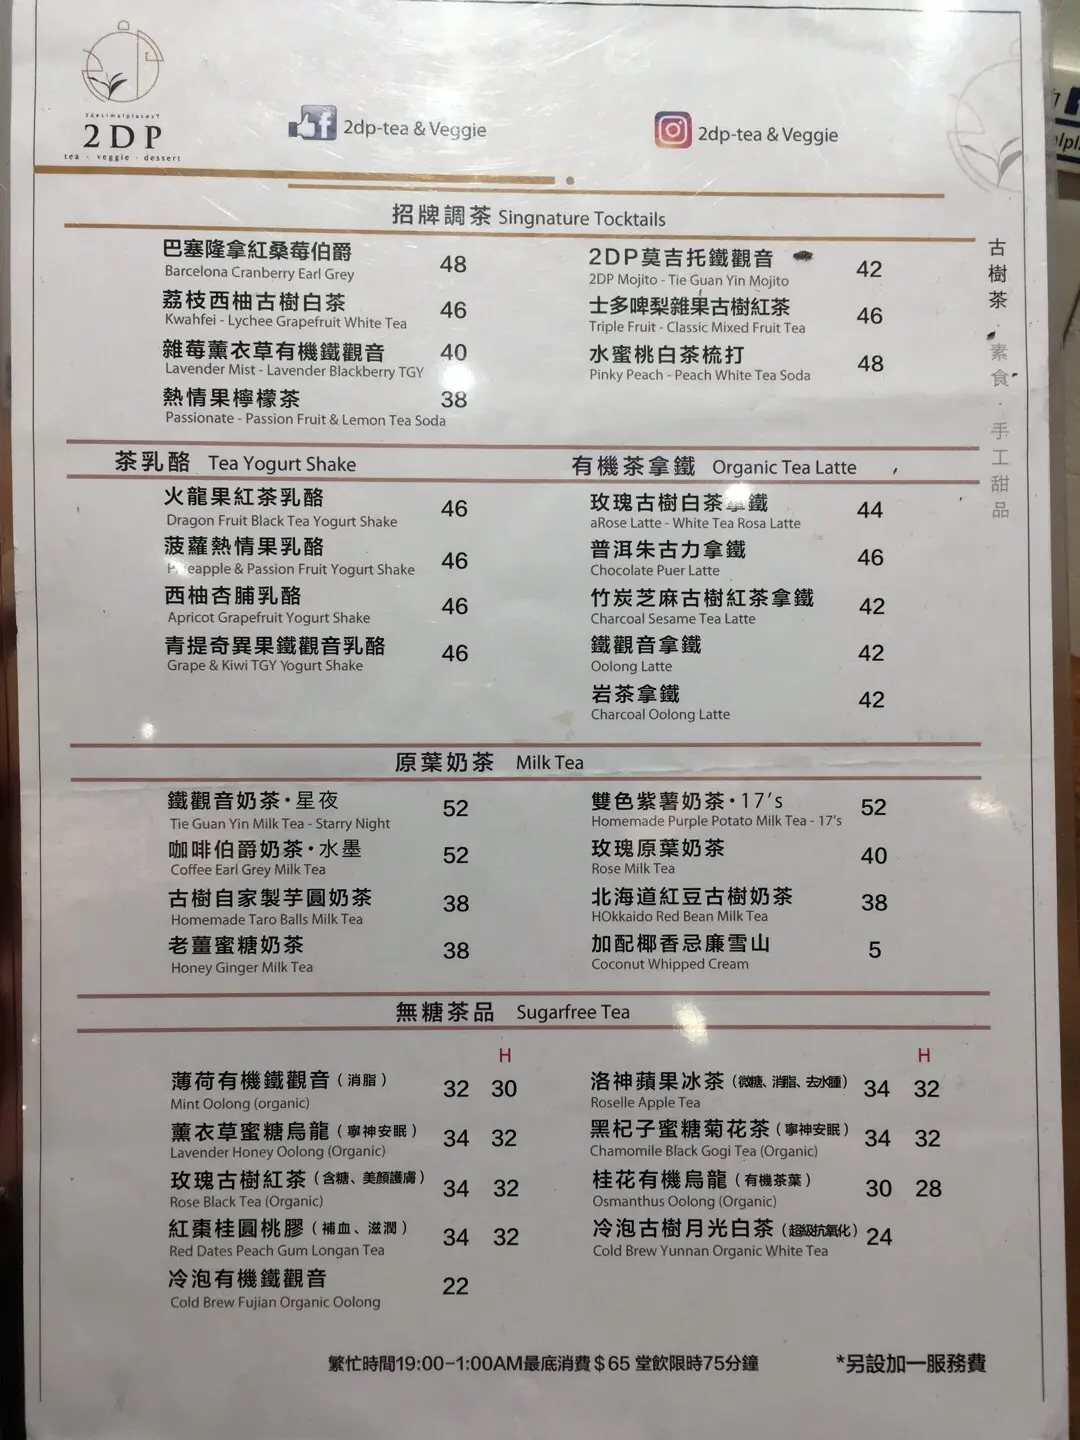 2decimalplaces?
2DP
tea · veggie · dessert
2dp-tea & Veggie
2dp-tea & Veggie
招牌調茶 Singnature Tocktails
巴塞隆拿紅桑莓伯爵 48
Barcelona Cranberry Earl Grey
荔枝西柚古樹白茶 46
Kwahfei - Lychee Grapefruit White Tea
雜莓薰衣草有機鐵觀音 40
Lavender Mist - Lavender Blackberry TGY
熱情果檸檬茶 38
Passionate - Passion Fruit & Lemon Tea Soda
2DP莫吉托鐵觀音 42
2DP Mojito - Tie Guan Yin Mojito
士多啤梨雜果古樹紅茶 46
Triple Fruit - Classic Mixed Fruit Tea
水蜜桃白茶梳打 48
Pinky Peach - Peach White Tea Soda
古樹茶 · 素食 · 手工甜品
茶乳酪 Tea Yogurt Shake
火龍果紅茶乳酪 46
Dragon Fruit Black Tea Yogurt Shake
菠蘿熱情果乳酪 46
Pineapple & Passion Fruit Yogurt Shake
西柚杏脯乳酪 46
Apricot Grapefruit Yogurt Shake
青提奇異果鐵觀音乳酪 46
Grape & Kiwi TGY Yogurt Shake
有機茶拿鐵 Organic Tea Latte
玫瑰古樹白茶拿鐵 44
aRose Latte - White Tea Rosa Latte
普洱朱古力拿鐵 46
Chocolate Puer Latte
竹炭芝麻古樹紅茶拿鐵 42
Charcoal Sesame Tea Latte
鐵觀音拿鐵 42
Oolong Latte
岩茶拿鐵 42
Charcoal Oolong Latte
原葉奶茶 Milk Tea
鐵觀音奶茶·星夜 52
Tie Guan Yin Milk Tea - Starry Night
咖啡伯爵奶茶·水墨 52
Coffee Earl Grey Milk Tea
古樹自家製芋圓奶茶 38
Homemade Taro Balls Milk Tea
老薑蜜糖奶茶 38
Honey Ginger Milk Tea
雙色紫薯奶茶·17's 52
Homemade Purple Potato Milk Tea - 17's
玫瑰原葉奶茶 40
Rose Milk Tea
北海道紅豆古樹奶茶 38
HOkkaido Red Bean Milk Tea
加配椰香忌廉雪山 5
Coconut Whipped Cream
無糖茶品 Sugarfree Tea
H
薄荷有機鐵觀音（消脂） 32 30
Mint Oolong (organic)
薰衣草蜜糖烏龍（寧神安眠） 34 32
Lavender Honey Oolong (Organic)
玫瑰古樹紅茶（含糖、美顏護膚） 34 32
Rose Black Tea (Organic)
紅棗桂圓桃膠（補血、滋潤） 34 32
Red Dates Peach Gum Longan Tea
冷泡有機鐵觀音 22
Cold Brew Fujian Organic Oolong
H
洛神蘋果冰茶（微糖、消脂、去水腫） 34 32
Roselle Apple Tea
黑杞子蜜糖菊花茶（寧神安眠） 34 32
Chamomile Black Gogi Tea (Organic)
桂花有機烏龍（有機茶葉） 30 28
Osmanthus Oolong (Organic)
冷泡古樹月光白茶（超級抗氧化） 24
Cold Brew Yunnan Organic White Tea
繁忙時間19:00-1:00AM最底消費＄65 堂飲限時75分鐘
*另設加一服務費